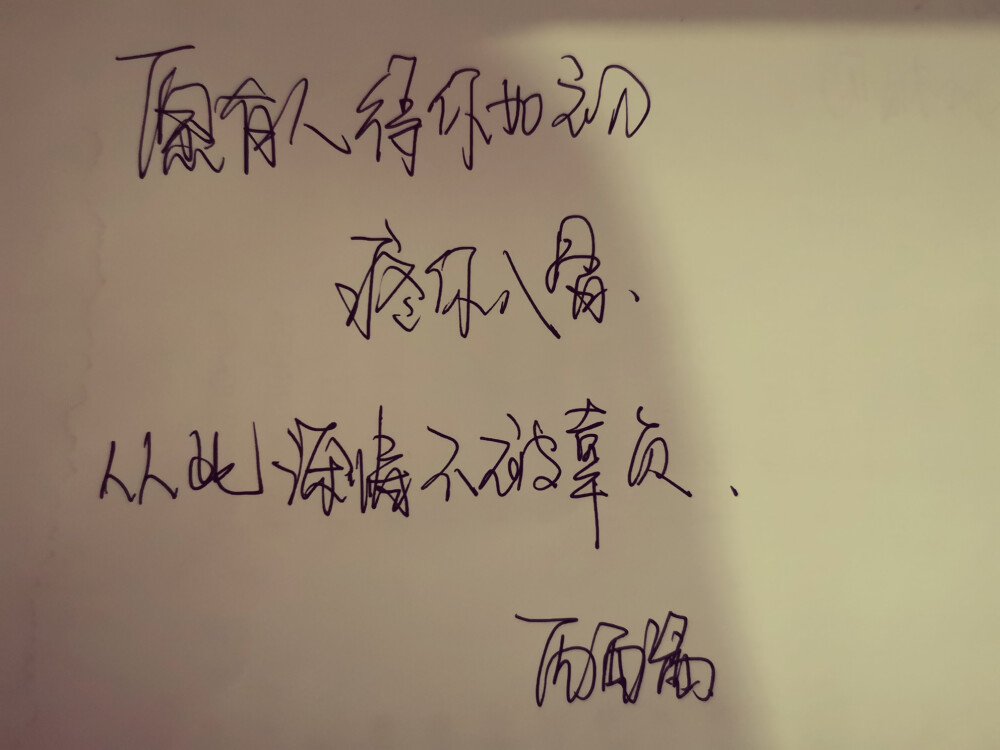 愿有人待你如初
疼你入骨、
从此深情不被辜负、